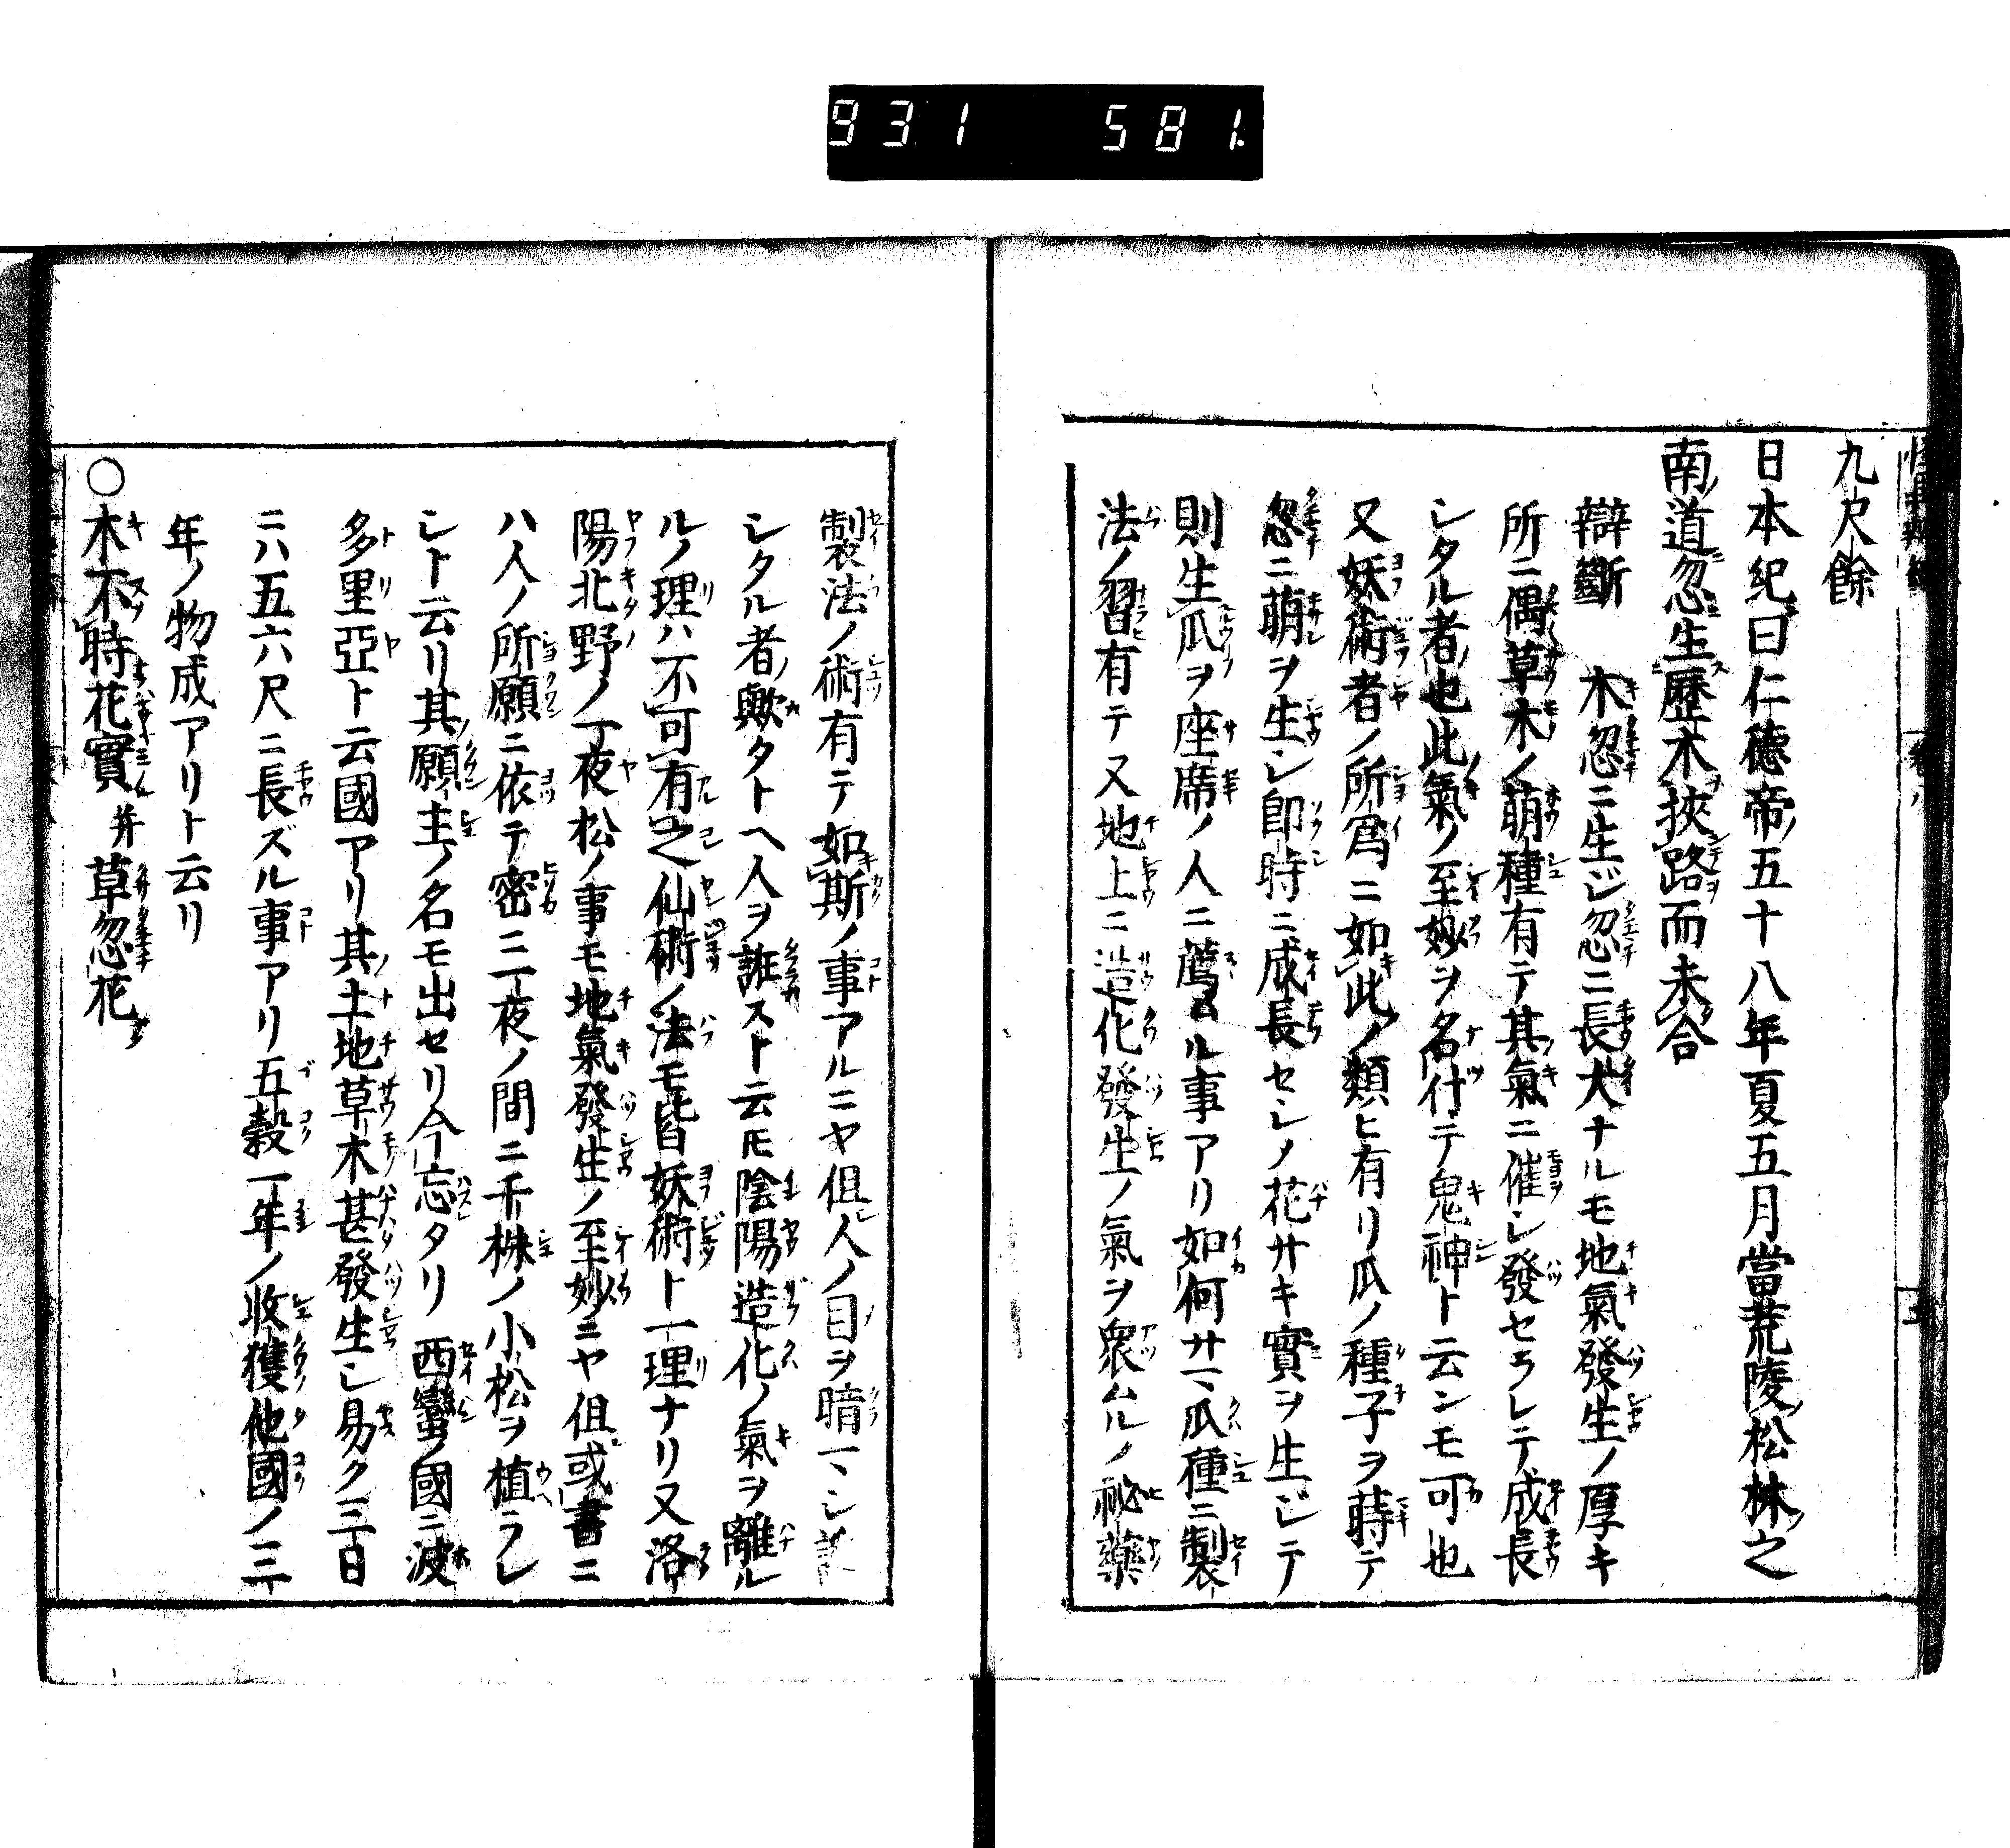 931 581.
九尺餘
日本紀曰仁德帝ノ五十八年夏五月當荒陵ノ松林ノ之
南ノ道ニ忽ニ生ス歷木ヲ挾路ヲ而末合
辯斷 木忽ニ生ジ忽ニ長大ナルモ地氣發生ノ厚キ
所ニ偶草木ノ萌種有テ其氣ニ催シ發セラレテ成長
シタル者也此氣ノ至妙ヲ名付テ鬼神ト云ンモ可也
又妖術者ノ所爲ニ如此ノ類ヒ有リ瓜ノ種子ヲ蒔テ
忽ニ萌ヲ生シ卽時ニ成長セシメ花サキ實ヲ生ジテ
則生瓜ヲ座席ノ人ニ薦ムル事アリ如何サマ瓜種ニ製
法ノ習有テ又地上ニ造化發生ノ氣ヲ衆ムルノ祕藥
製法ノ術有テ如斯ノ事アルニヤ但人ノ目ヲ暗マシ
シタル者歟タトヘ人ヲ誑スト云モ陰陽造化ノ氣ヲ離ル
ルノ理ハ不可有之仙術ノ法モ皆妖術ト一理ナリ又洛
陽北野ノ一夜松ノ事モ地氣發生ノ至妙ニヤ但或書ニ
ハ人ノ所願ニ依テ密ニ一夜ノ間ニ千株ノ小松ヲ植ラレ
シト云リ其願主ノ名モ出セリ今忘タリ 西蠻ノ國ニ波
多里亞ト云國アリ其土地草木甚發生シ易ク三日
ニハ五六尺ニ長ズル事アリ五穀一年ノ收獲他國ノ三
年ノ物成アリト云リ
○木不時花實 并 草忽花